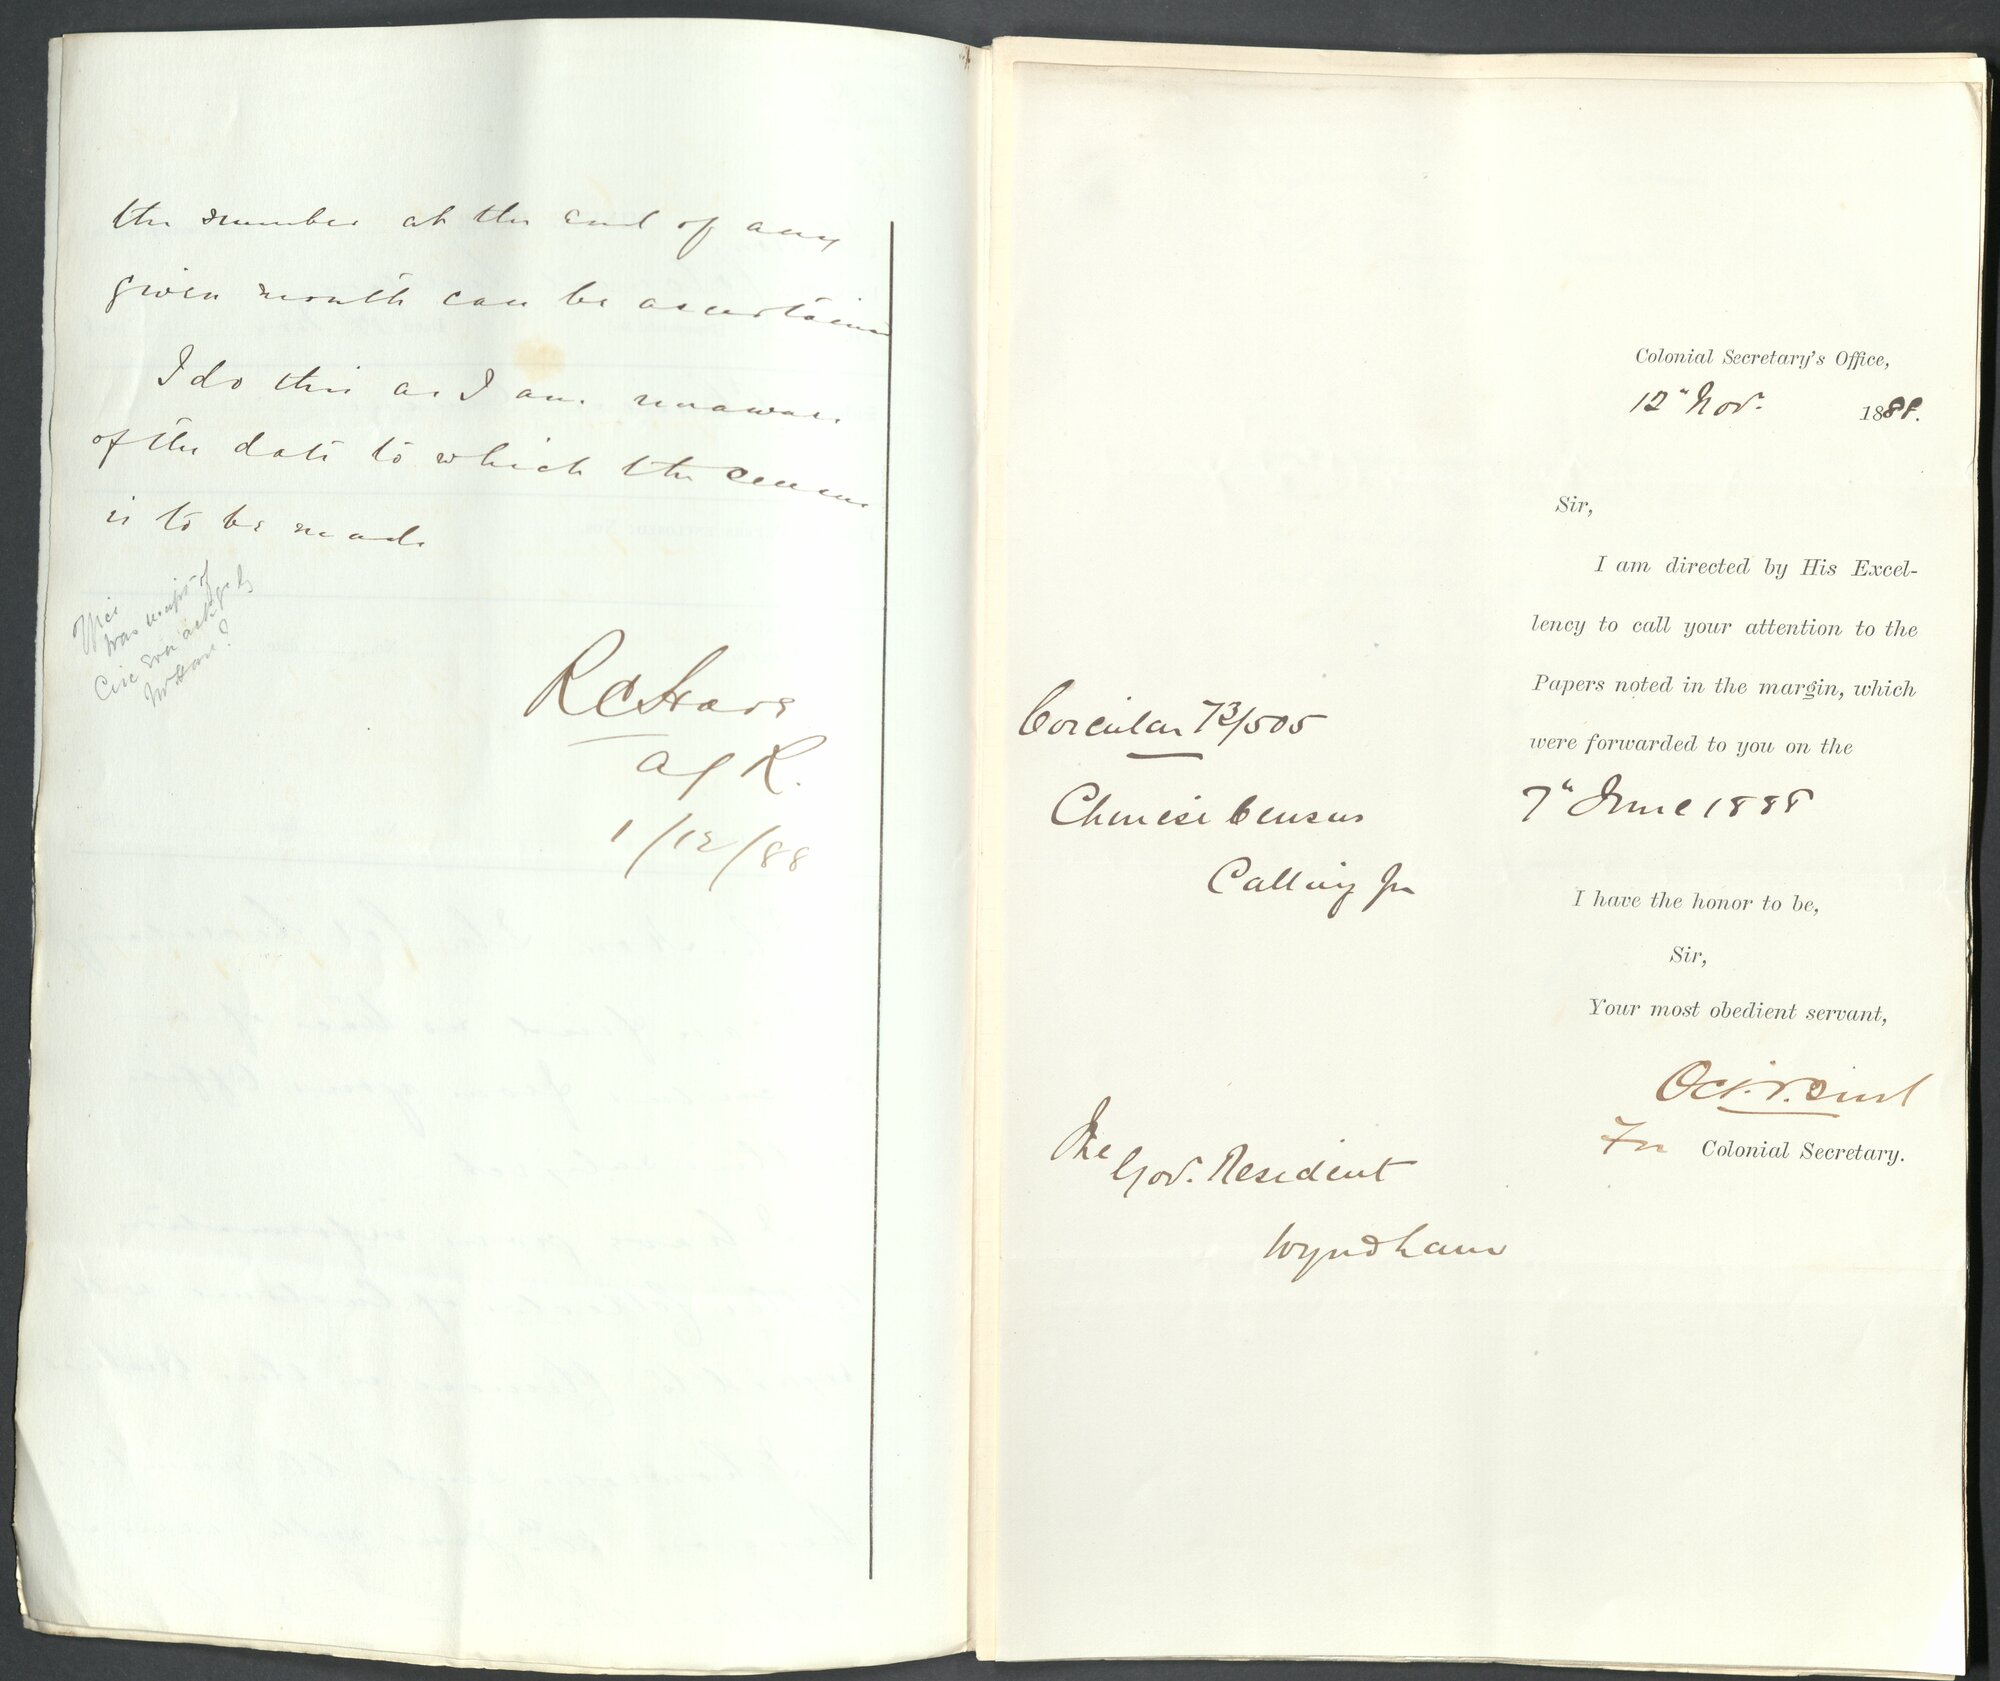 the number at the end of any
given month can be ascertained
I do this as I am unaware
of the date to which the census
is to be made
was receipt of
Circ ever ackged by
Mr Hare?
R C Hare
Ag R.
1/12/88
Colonial Secretary's Office,
12" Nov. 1888.
Sir,
I am directed by His Excel-
lency to call your attention to the
Papers noted in the margin, which
were forwarded to you on the
7" June 1888
Circular 73/505
Chinese Census
Calling for
I have the honor to be,
Sir,
Your most obedient servant,
For Colonial Secretary.
The
Gov. Resident
Wyndham